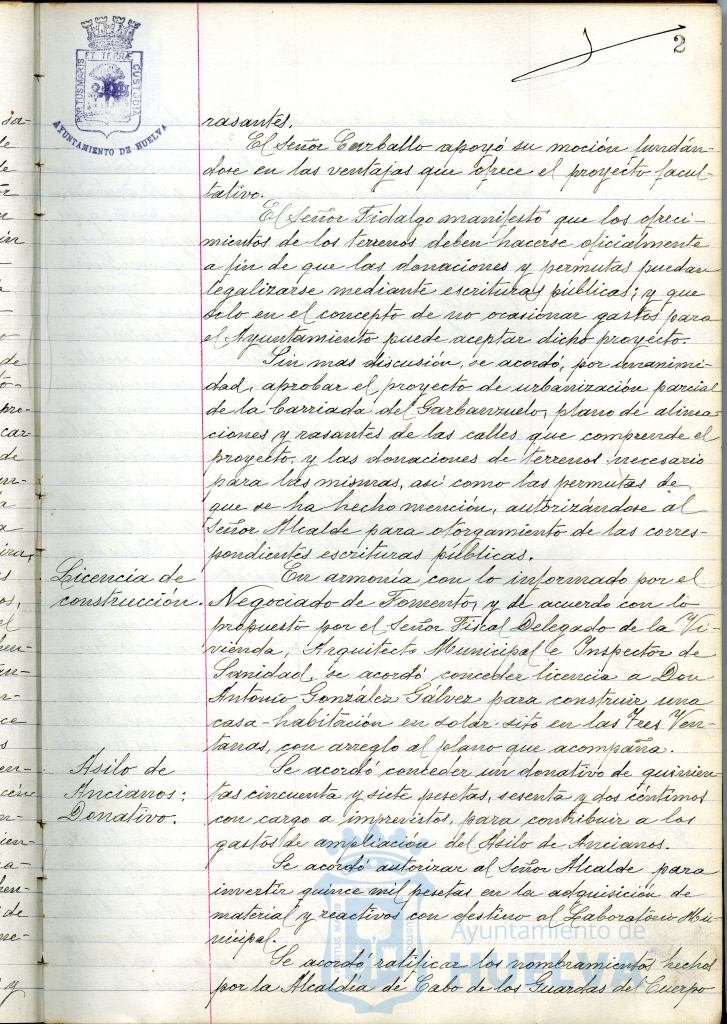 2
PORTUS MARIS ET TERRÆ CUSTODIA
AYUNTAMIENTO DE HUELVA
rasantes.
El Señor Carballo apoyó su moción fundán-
dose en las ventajas que ofrece el proyecto facul-
tativo.
El Señor Fidalgo manifestó que los ofreci-
mientos de los terrenos deben hacerse oficialmente
a fin de que las donaciones y permutas puedan
legalizarse mediante escrituras públicas; y que
solo en el concepto de no ocasionar gastos para
el Ayuntamiento puede aceptar dicho proyecto.
Sin mas discusión, se acordó, por unanimi-
dad, aprobar el proyecto de urbanización parcial
de la barriada del Garbanzuelo, plano de alinea-
ciones y rasantes de las calles que comprende el
proyecto, y las donaciones de terrenos necesario
para las mismas, asi como las permutas de
que se ha hecho mención, autorizándose al
Señor Alcalde para otorgamiento de las corres-
pondientes escrituras públicas.
Licencia de
construcción.
En armonía con lo informado por el
Negociado de Fomento, y de acuerdo con lo
propuesto por el Señor Fiscal Delegado de la Vi-
vienda, Arquitecto Municipal e Inspector de
Sanidad, se acordó conceder licencia a Don
Antonio González Gálvez para construir una
casa-habitación en solar sito en las Tres Ven-
tanas, con arreglo al plano que acompaña.
Asilo de
Ancianos:
Donativo.
Se acordó conceder un donativo de quinien-
tas cincuenta y siete pesetas, sesenta y dos céntimos
con cargo a imprevistos, para contribuir a los
gastos de ampliación del Asilo de Ancianos.
Se acordó autorizar al Señor Alcalde para
invertir quince mil pesetas en la adquisición de
material y reactivos con destino al Laboratorio Mu-
nicipal.
Se acordó ratificar los nombramientos hechos
por la Alcaldía de Cabo de los Guardas del Cuerpo
Ayuntamiento de
HUELVA